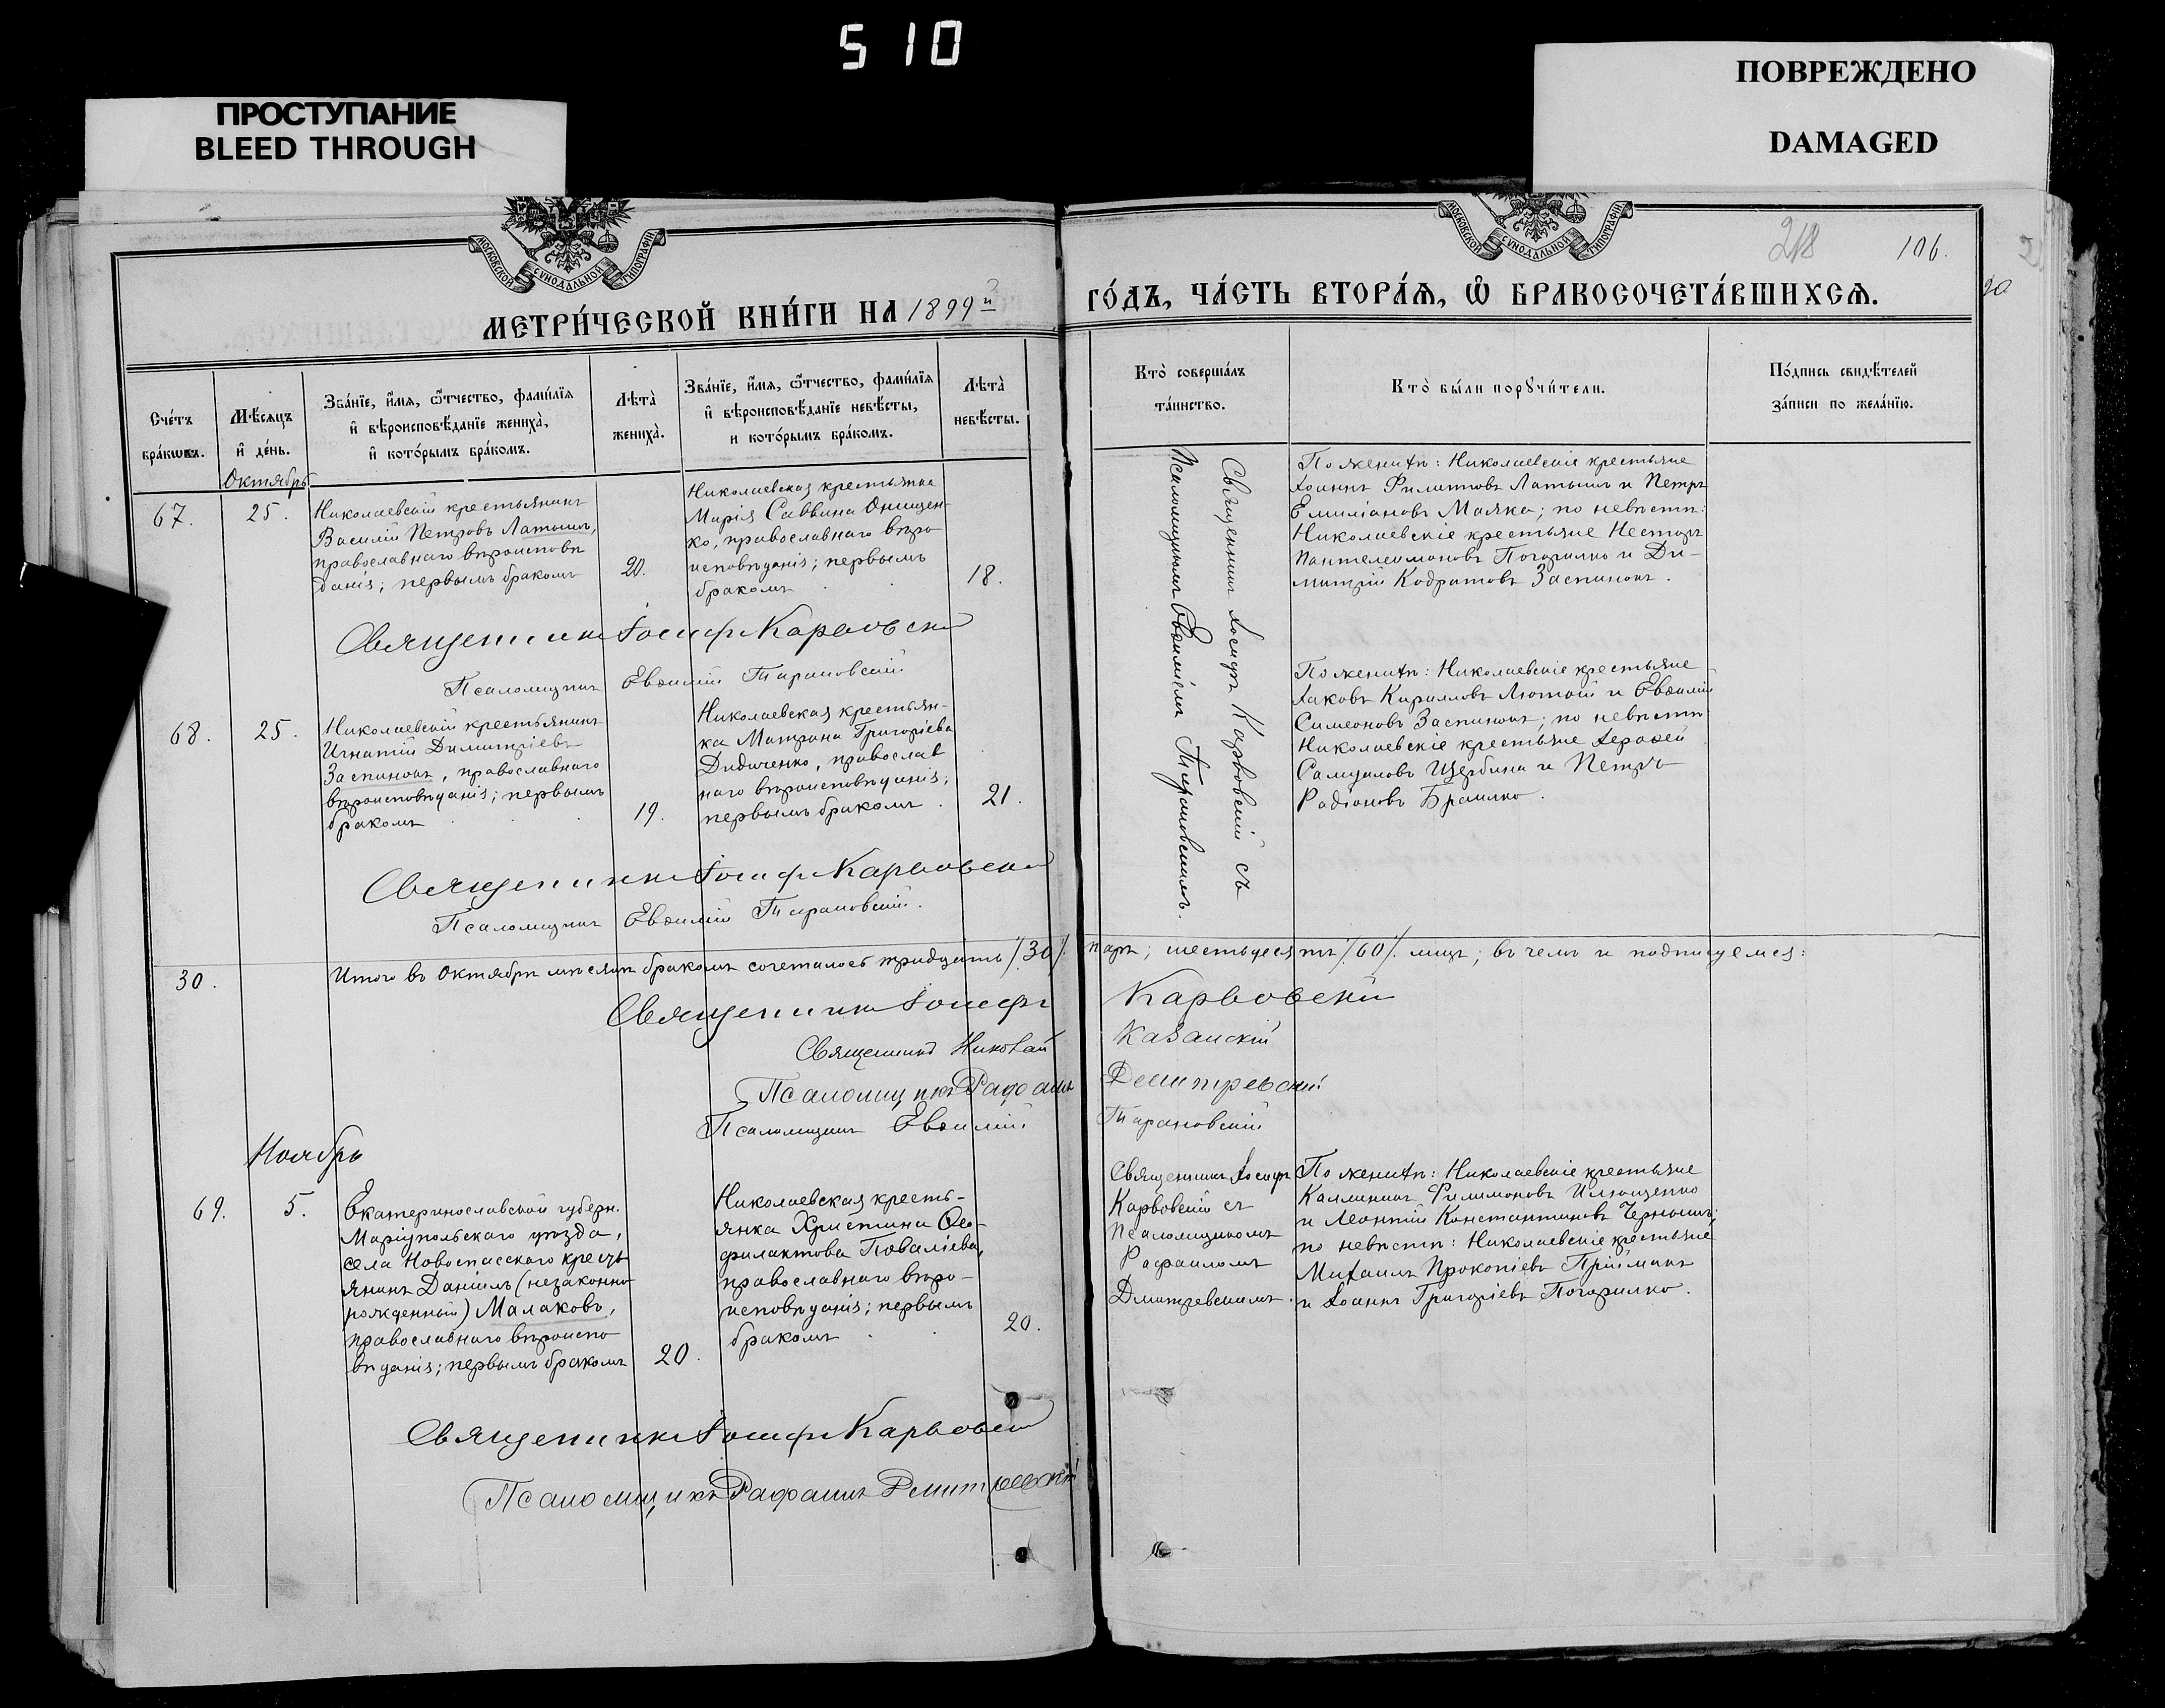 5 10
ПРОСТУПАНИЕ
BLEED THROUGH
ПОВРЕЖДЕНО
DAMAGED
МОСКОВСКОЙ СѴНОДАЛЬНОЙ ТИПОГРАФІИ
МОСКОВСКОЙ СѴНОДАЛЬНОЙ ТИПОГРАФІИ
218
106.
МЕТРИ́ЧЕСКОЙ КНИ́ГИ НА 1899й
ГО́ДЪ, ЧА́СТЬ ВТОРА́Ѧ, Ѽ БРАКОСОЧЕТА́ВШИХСѦ.
Сче́тъ
бра́кωвъ.
Мѣ́сяцъ
и҆ де́нь.
Зва́нїе, и҆́мя, ѻ҆́тчество, фами́лїя
и҆ вѣроисповѣ́данїе жениха̀,
и҆ кото́рымъ бра́комъ.
Лѣта̀
жениха̀.
Зва́нїе, и҆́мя, ѻ҆́тчество, фами́лїя
и҆ вѣроисповѣ́данїе невѣ́сты,
и кото́рымъ бра́комъ.
Лѣта̀
невѣ́сты.
Кто̀ соверша́лъ
та́инство.
Кто̀ бы́ли порꙋчи́тели.
По́дпись свидѣ́телей
за́писи по жела́нїю.
Октябрь
67.
25.
Николаевскій крестьянинъ
Василій Петровъ Латышъ,
православнаго вѣроисповѣ
данія; первымъ бракомъ
20.
Николаевская крестьянка
Марія Саввина Онищен-
ко, православнаго вѣро
исповѣданія; первымъ
бракомъ
18.
Священникъ Іосифъ Карвовскій съ
Псаломщикомъ Евѳиміемъ Тарановскимъ.
По женихѣ: Николаевскіе крестьяне
Іоаннъ Филипповъ Латышъ и Петръ
Емиліановъ Маяка; по невѣстѣ:
Николаевскіе крестьяне Несторъ
Пантелеимоновъ Погорилко и Ди-
митрій Кодратовъ Заспинокъ.
Священникъ Іосифъ Карвовскій
Псаломщикъ Евѳимій Тарановскій
68.
25.
Николаевскій крестьянинъ
Игнатій Димитріевъ
Заспинокъ, православнаго
вѣроисповѣданія; первымъ
бракомъ
19.
Николаевская крестьян-
ка Матрона Григоріева
Дидиченко, православ
наго вѣроисповѣданія;
первымъ бракомъ.
21.
По женихѣ: Николаевскіе крестьяне
Іаковъ Кирилловъ Лютый и Евѳимій
Симеоновъ Заспинокъ; по невѣстѣ
Николаевскіе крестьяне Іероѳей
Самуиловъ Щербина и Петръ
Радіоновъ Браилко.
Священникъ Іосифъ Карвовскій
Псаломщикъ Евѳимій Тарановскій.
30.
Итого въ Октябрѣ мѣсяцѣ бракомъ сочеталось тридцать /30/. паръ; шестьдесятъ /60/. лицъ; въ чемъ и подписуемся:
Священникъ Іосифъ Карвовскій
Священникъ Николай Казанскій
Псаломщикъ Рафаилъ Дмитревскій
Псаломщикъ Евѳимій Тарановскій
Ноябрь
69.
5.
Екатеринославской губерн.
Маріупольскаго уѣзда,
села Новоспасскаго кресть
янинъ Даніилъ (незаконно
рожденный) Малаковъ,
православнаго вѣроиспо
вѣданія; первымъ бракомъ
20.
Николаевская кресть-
янка Христина Ѳео-
филактова Поваліева,
православнаго вѣро-
исповѣданія; первымъ
бракомъ
20.
Священникъ Іосифъ
Карвовскій съ
Псаломщикомъ
Рафаиломъ
Дмитревскимъ.
По женихѣ: Николаевскіе крестьяне
Каллиникъ Филимоновъ Илющенко
и Леонтій Константиновъ Чернышъ;
по невѣстѣ: Николаевскіе крестьяне
Михаилъ Прокопіевъ Пріймакъ
и Іоаннъ Григоріевъ Погорилко.
Священникъ Іосифъ Карвовскій
Псаломщикъ Рафаилъ Дмитревскій